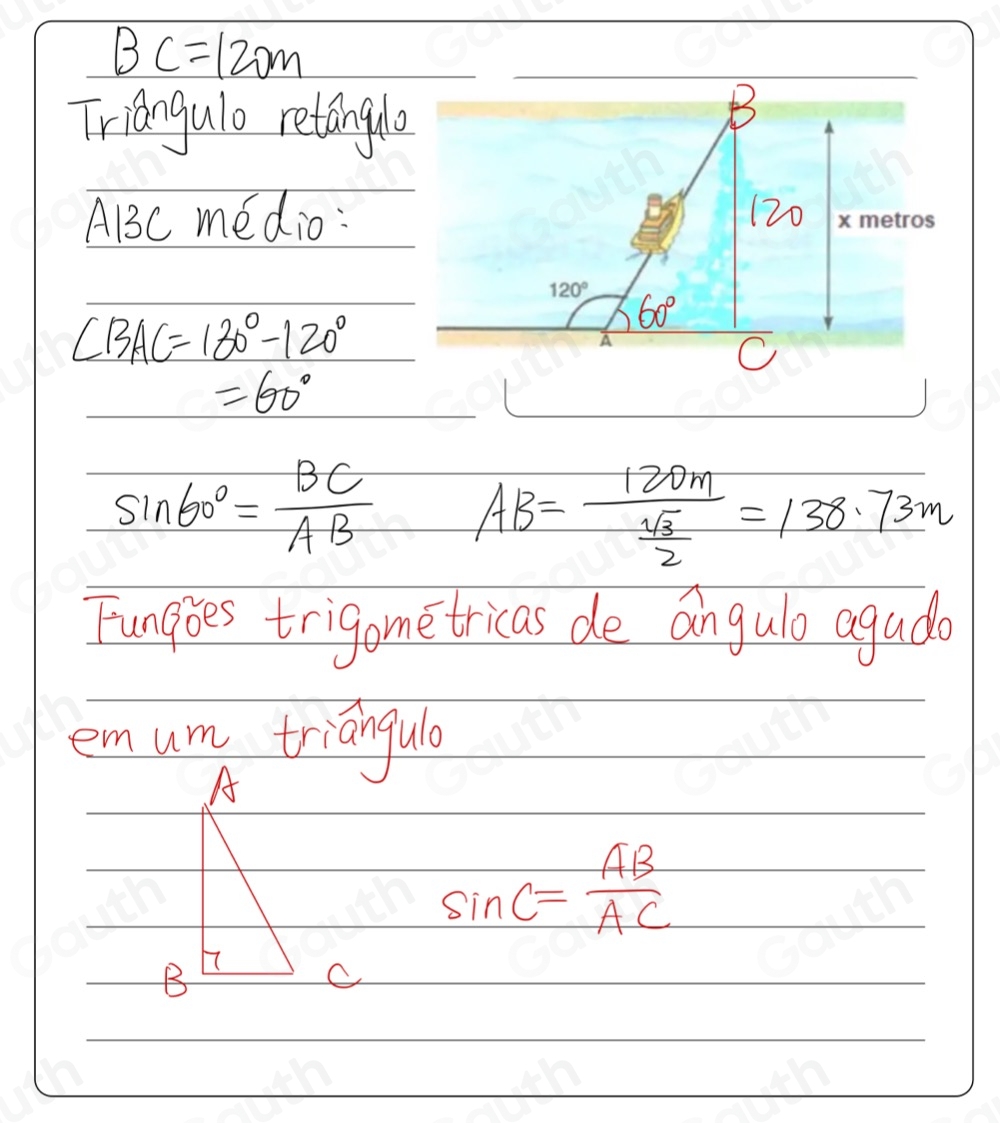 BC=120m
Triângulo retângulo
ABC médio:
∠BAC=180°-120°
=60°
B
120
x metros
120°
60°
A
C
sin60°= BC/AB
AB= 120m/(√3/2) =138.73m
Funções trigométricas de ângulo agudo
em um triângulo
A
B
C
sinC= AB/AC
Gauth